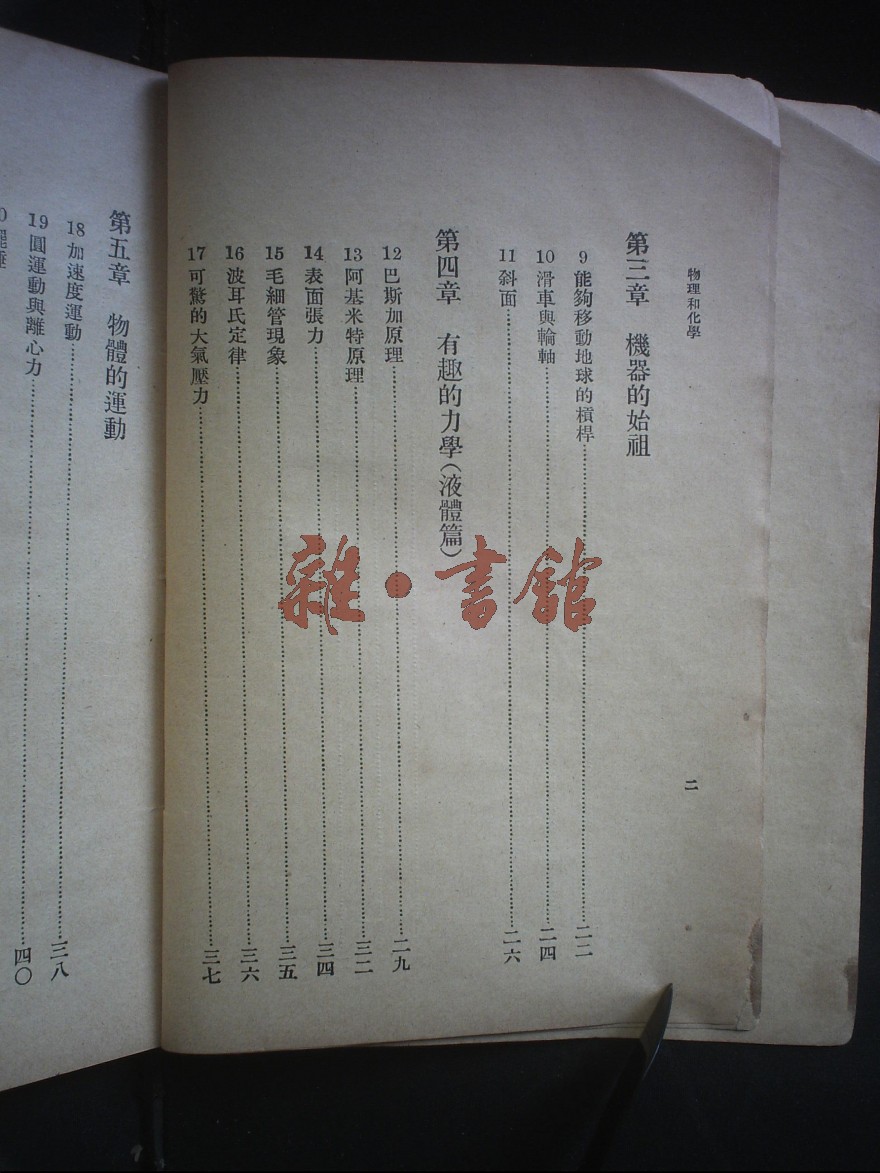 物理和化學
二
第三章 機器的始祖
9 能夠移動地球的槓桿……二二
10 滑車與輪軸……二四
11 斜面……二六
第四章 有趣的力學(液體篇)
12 巴斯加原理……二九
13 阿基米特原理……三二
14 表面張力……三四
15 毛細管現象……三五
16 波耳氏定律……三六
17 可驚的大氣壓力……三七
第五章 物體的運動
18 加速度運動……三八
19 圓運動與離心力……四〇
雜·書館